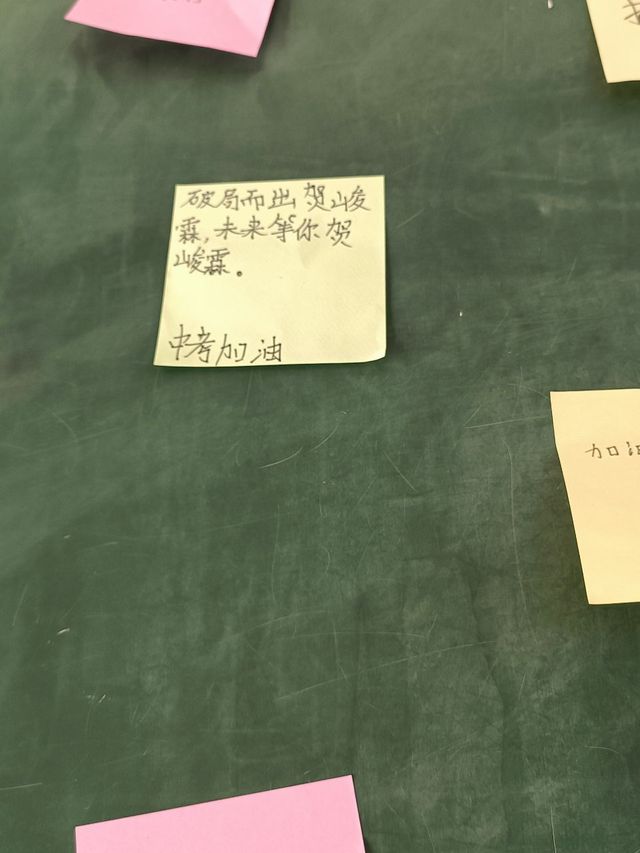 破局而出贺峻
霖,未来等你贺
峻霖。
中考加油
加油